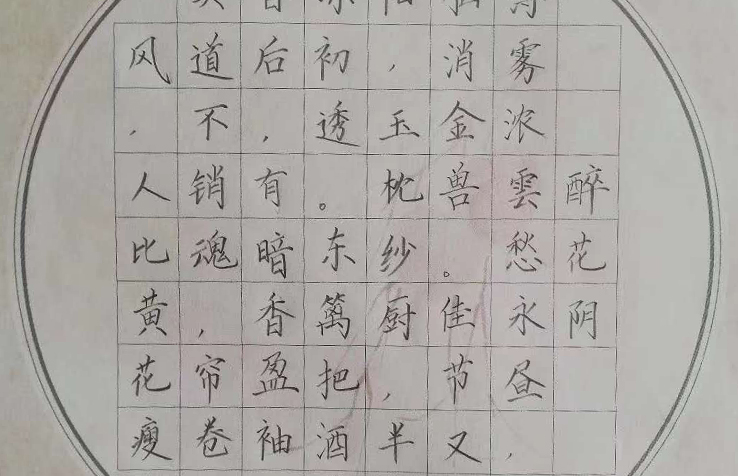 醉花阴
雾浓雲愁永昼，
消金兽。佳节又
，玉枕纱厨，半
初透。东篱把酒
后，有暗香盈袖
道不销魂，帘卷
风，人比黄花瘦